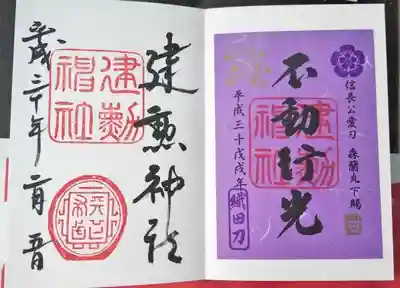 信長公愛刀　森蘭丸下賜
不動行光
建勳神社
平成三十戊戌年
織田刀
建勲神社
建勳神社
平成三十年